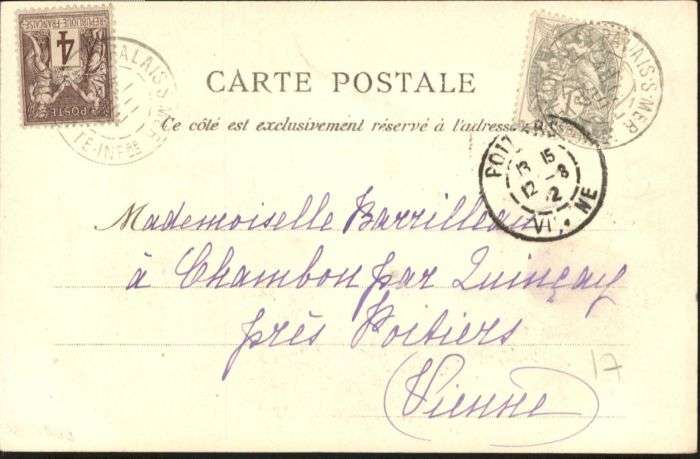 4
POSTE
RÉPUBLIQUE FRANÇAISE
PALAIS-S-MER
TE-INFRE
PALAIS-S-MER
CARTE POSTALE
Ce côté est exclusivement réservé à l'adresse
13 15
12 - 8
2
NE
Mademoiselle Barrilleau
à Chambon par Quinçay
près Poitiers
Vienne
17